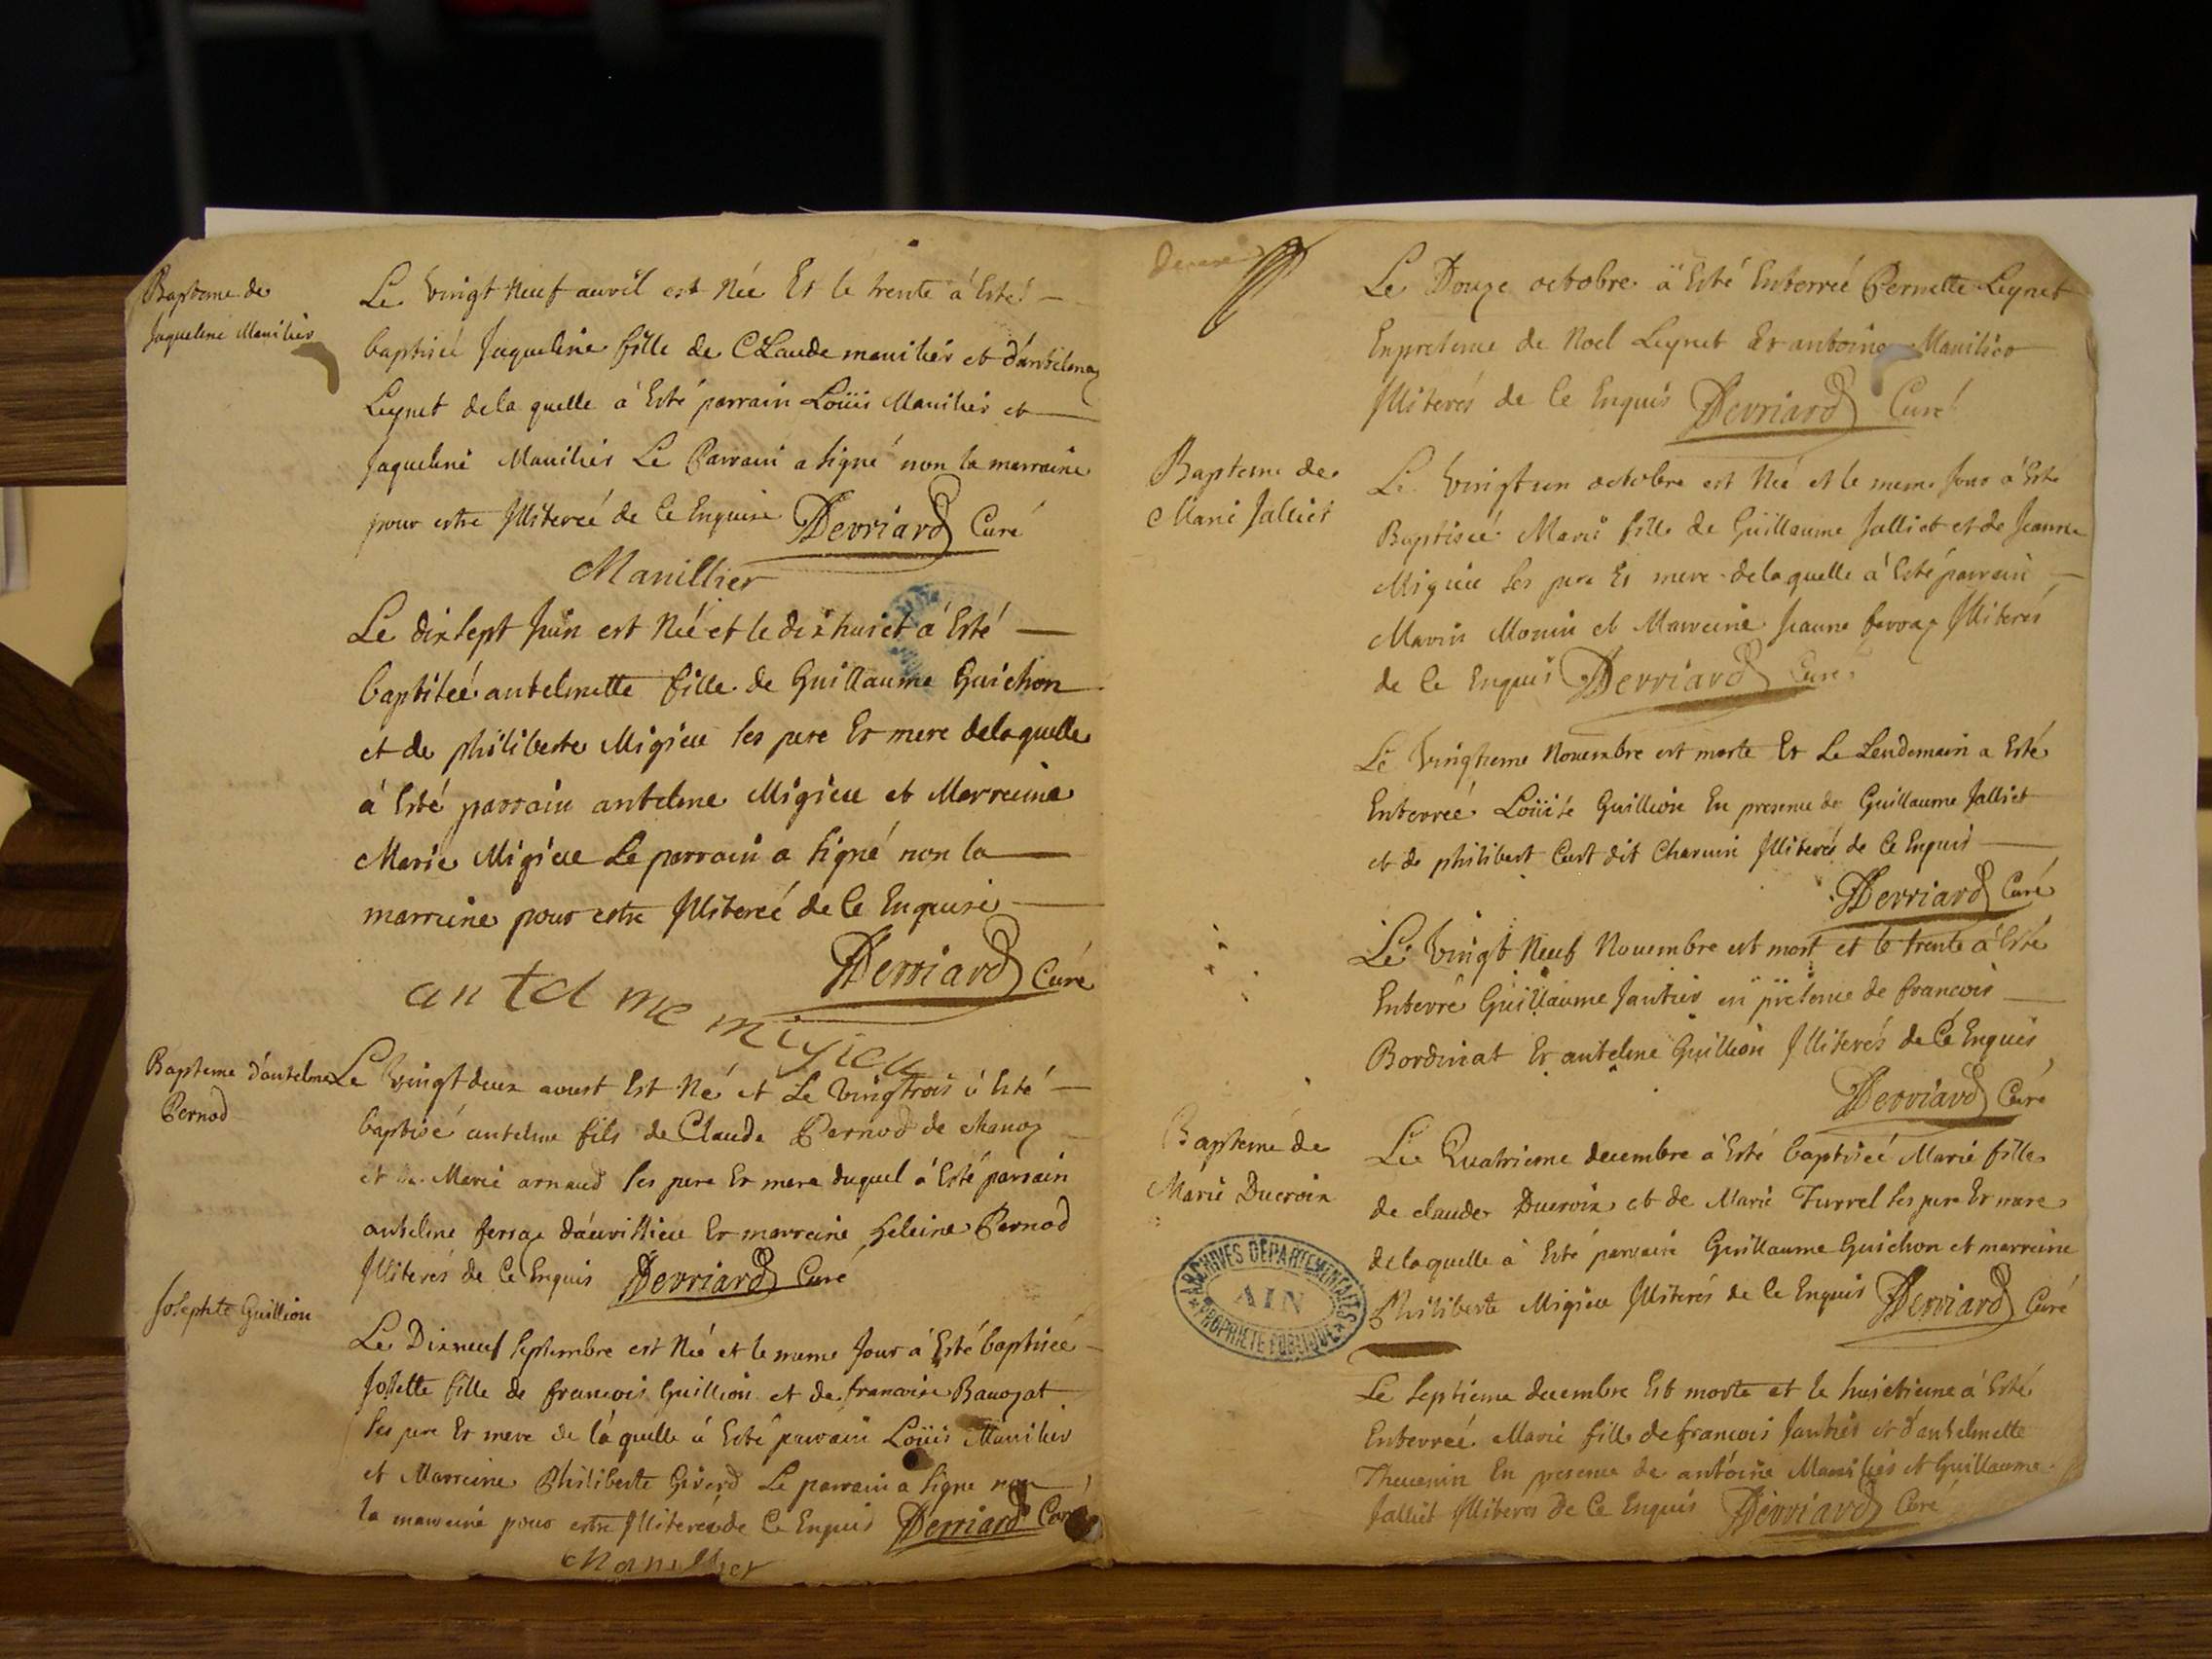 Bapteme de
Jaqueline Manilier
Le vingt neuf avvil est Née Et le trente à Esté
baptiseé Jaqueline fille de CLaude manilier et d'antelmaz
Leynet dela quelle à Esté parrain Loüis Manilier et
Jaqueline Manilier Le Parrain a signé non la marraine
pour estre Illitereé de Ce Enquise Derriard Curé
Manillier
Le dix sept Juin est Neé et le dix huict à Esté
baptiseé antelmette fille de Guillaume Guichon
et de philiberte Migieu ses pere Et mere delaquelle
à Esté parrain antelme Migieu et Marreine
Marie Migieu Le parrain a signé non la
marreine pour estre Illitereé de Ce Enquise
Derriard Curé
antel me migieu
Bapteme d'antelme
Pernod
Le vingt deux aoust Est Né et Le vingtrois à Esté
baptisé antelme fils de Claude Pernod de
et de Marie arnaud ses pere Et mere duquel à Esté parrain
antelme ferraz Et marreine heleine Pernod
Illiterés de Ce Enquis Derriard Curé
Josephte Guillion
Le Dixneuf septembre est Neé et le meme Jour à Esté baptiseé
Josette fille de francois Guillion et de francoise Bauozat
ses pere Et mere de laquelle à Esté parrain Loüis Manilier
et Marreine Philiberte Girerd Le parrain a signé non
la marreine pour estre Illitereé de Ce Enquis Derriard Curé
Manillier
Le Douze octobre à Esté Enterreé Pernette Leynet
Enpresence de Noel Leynet Et antoine Manilier
Illiterés de Ce Enquis Derriard Curé
Bapteme de
Marie Jalliet
Le vingt un octobre est Neé et le meme Jour à Esté
Baptiseé Marie fille de Guillaume Jalliet et de Jeanne
Migieu ses pere Et mere delaquelle à Esté parrain
Marin Monin et Marreine Jeanne ferraz Illiterés
de Ce Enquis Derriard Curé
Le vingtieme Novembre est morte Et Le Lendemain a Esté
Enterreé Loüise Guillion En presence de Guillaume Jalliet
et de philibert Curt dit Charvin Illiterés de Ce Enquis
Derriard Curé
Le vingt Neuf Novembre est mort et le trente à Esté
Enterré Guillaume Jantier en presence de francois
Bordinat Et antelme Guillion Illiterés de Ce Enquis
Derriard Curé
Bapteme de
Marie Ducroix
Le Quatrieme decembre à Esté baptiseé Marie fille
de claude Ducroix et de Marie Turrel ses pere Et mere
delaquelle à Esté parrain Guillaume Guichon et marreine
Philiberte Migieu Illiterés de Ce Enquis Derriard Curé
ARCHIVES DÉPARTEMENTALES
AIN
PROPRIÉTÉ PUBLIQUE
Le septieme decembre Est morte et le huictieme à Esté
Enterreé Marie fille de francois Jantier et d'antelmette
Thevenin En presence de antoine Manilier et Guillaume
Jalliet Illiterés de Ce Enquis Derriard Curé